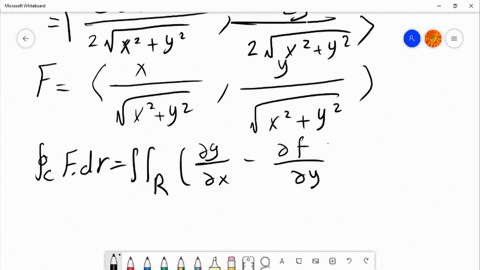 Microsoft Whiteboard
= ⟨ 2√x²+y² , 2√x²+y² ⟩
F = ⟨ x/√x²+y² , y/√x²+y² ⟩
∮c F.dr = ∬R ( ∂g/∂x − ∂f/∂y